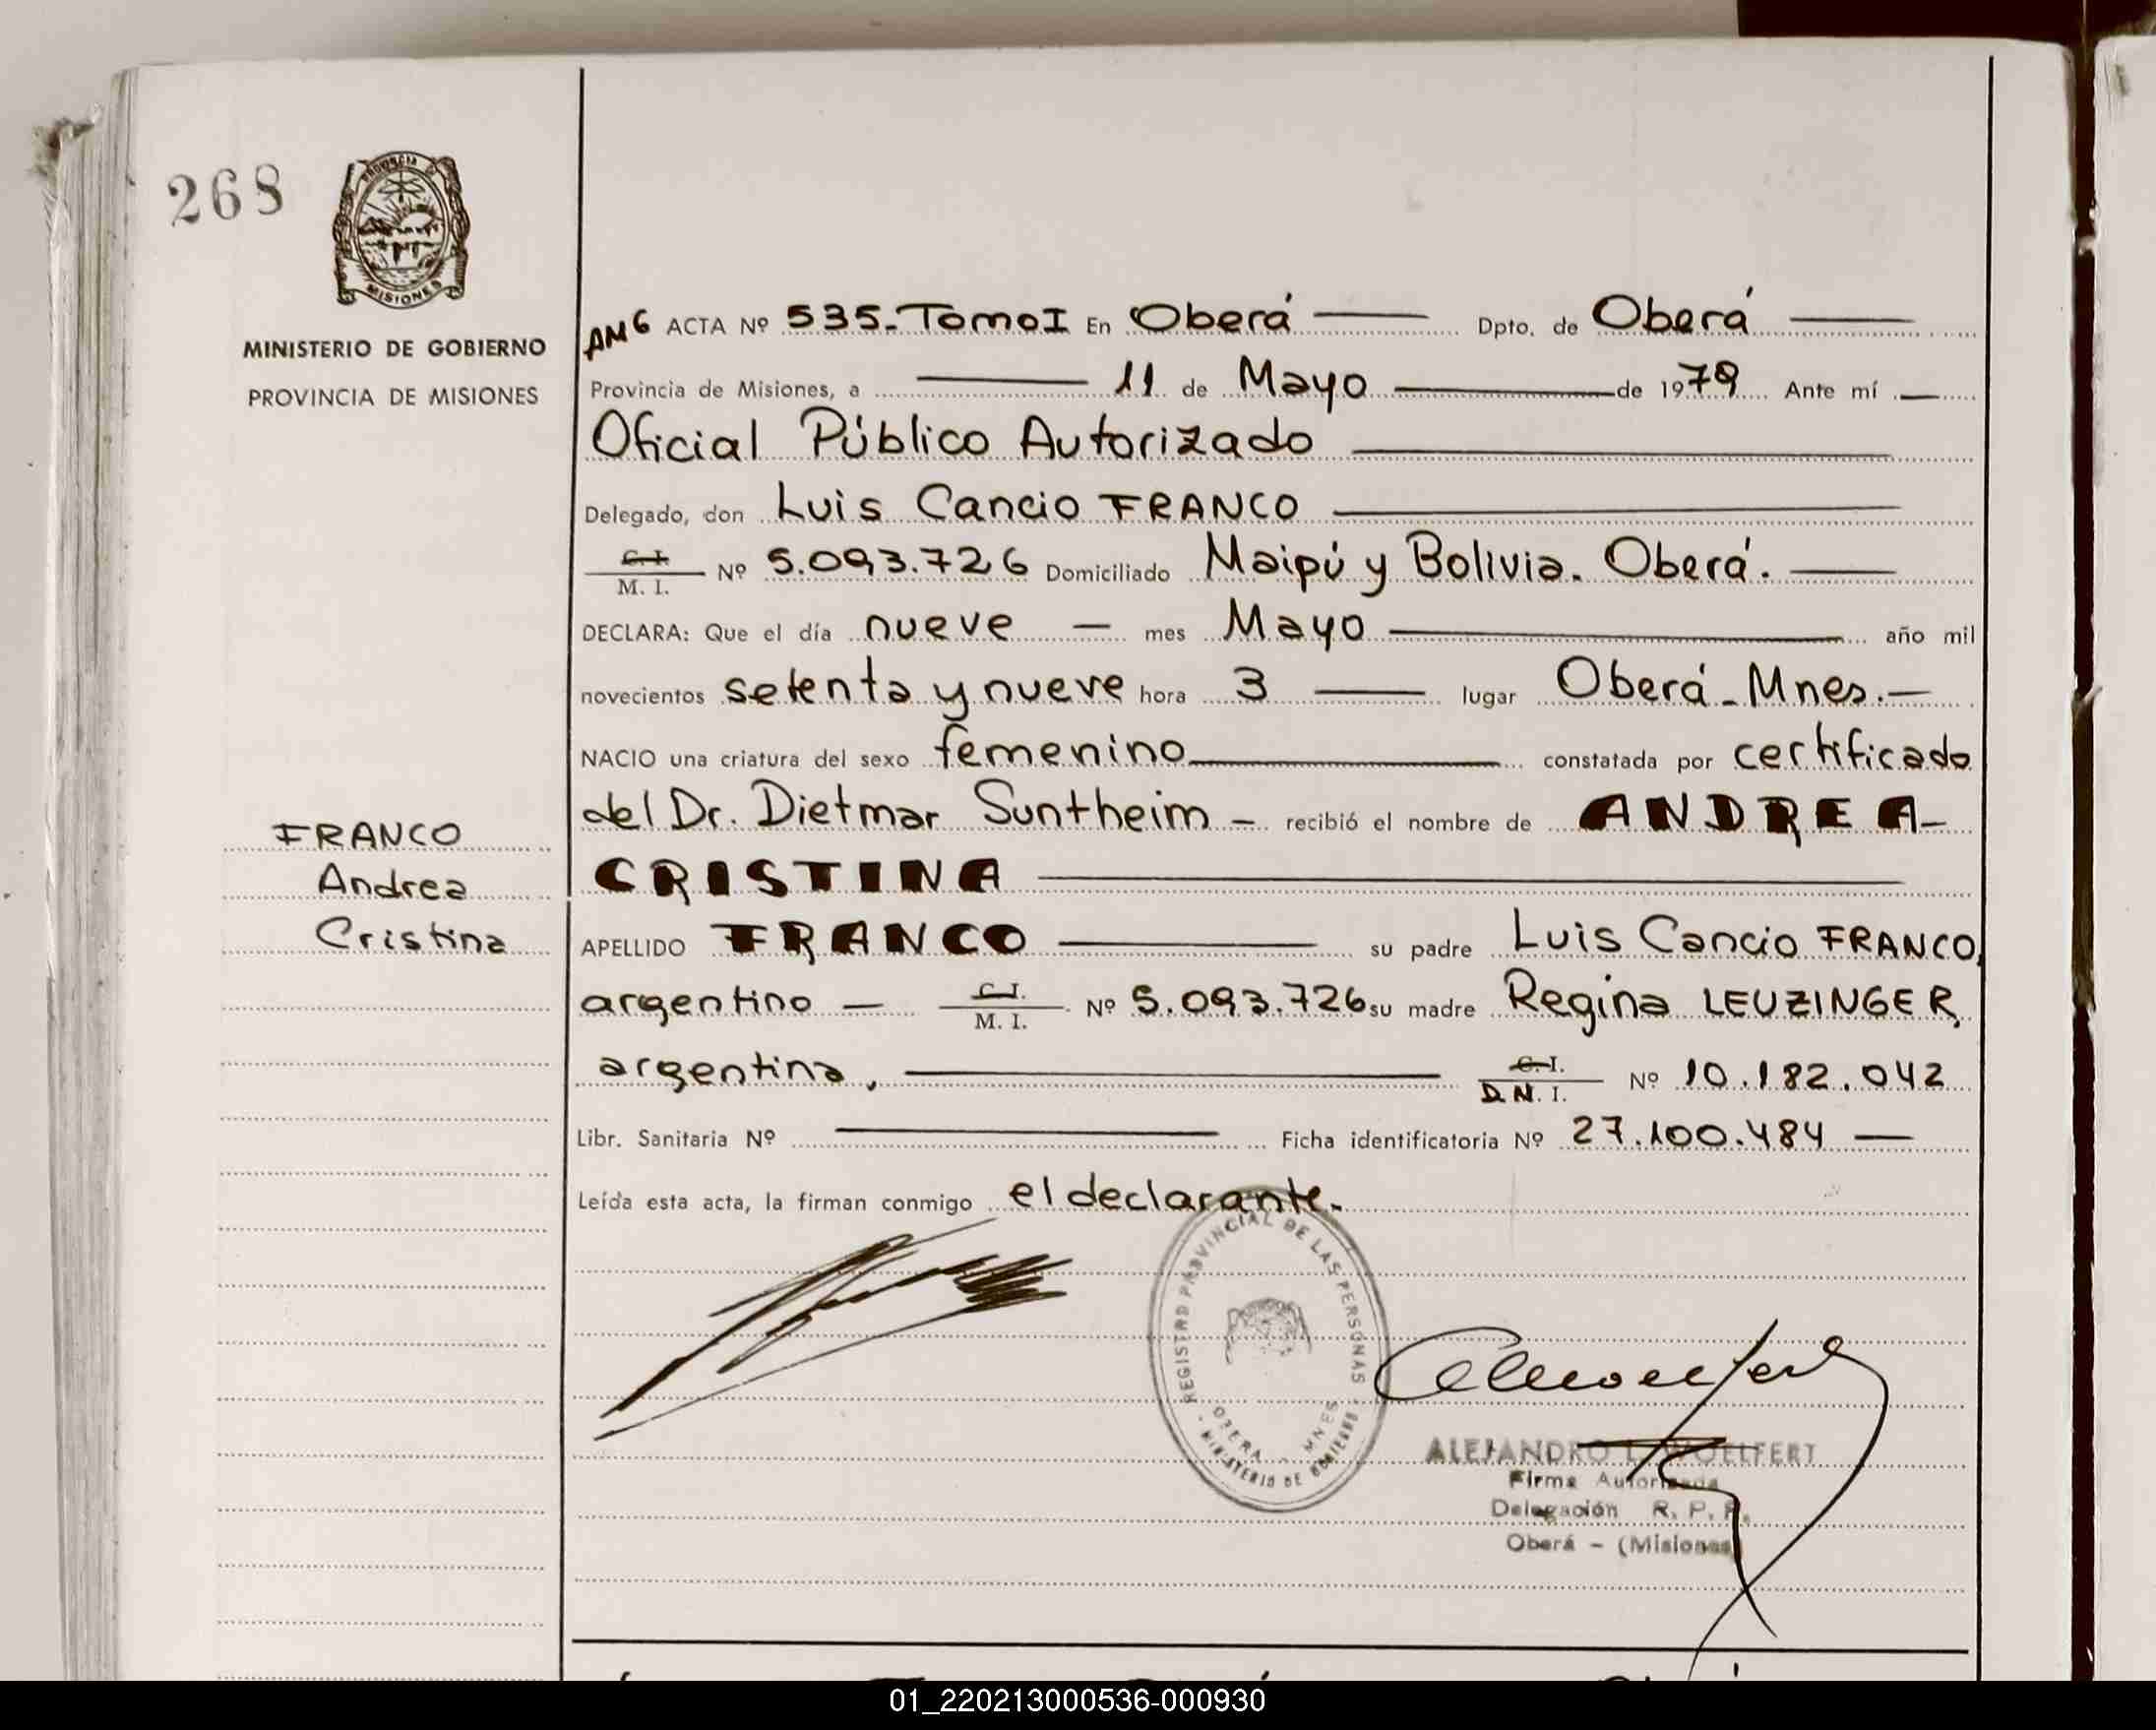 268
PROVINCIA D
MISIONES
MINISTERIO DE GOBIERNO
PROVINCIA DE MISIONES
FRANCO
Andrea
Cristina
AMG ACTA Nº 535-Tomo I En Oberá Dpto. de Oberá
Provincia de Misiones, a 11 de Mayo de 1979 Ante mí
Oficial Público Autorizado
Delegado, don Luis Cancio FRANCO
C. I.
M. I. Nº 5.093.726 Domiciliado Maipú y Bolivia. Oberá.
DECLARA: Que el día nueve mes Mayo año mil
novecientos setenta y nueve hora 3 lugar Oberá - Mnes.
NACIO una criatura del sexo femenino constatada por certificado
del Dr. Dietmar Suntheim - recibió el nombre de ANDREA-
CRISTINA
APELLIDO FRANCO su padre Luis Cancio FRANCO,
argentino — C. I.
M. I. Nº 5.093.726 su madre Regina LEUZINGER,
argentina, C. I.
D. N. I. Nº 10.182.042
Libr. Sanitaria Nº Ficha identificatoria Nº 27.100.484
Leída esta acta, la firman conmigo el declarante.
REGISTRO PROVINCIAL DE LAS PERSONAS
OBERA - MNES
MINISTERIO DE GOBIERNO
ALEJANDRO L. WOELFERT
Firma Autorizada
Delegación R. P. P.
Oberá - (Misiones)
01_220213000536-000930